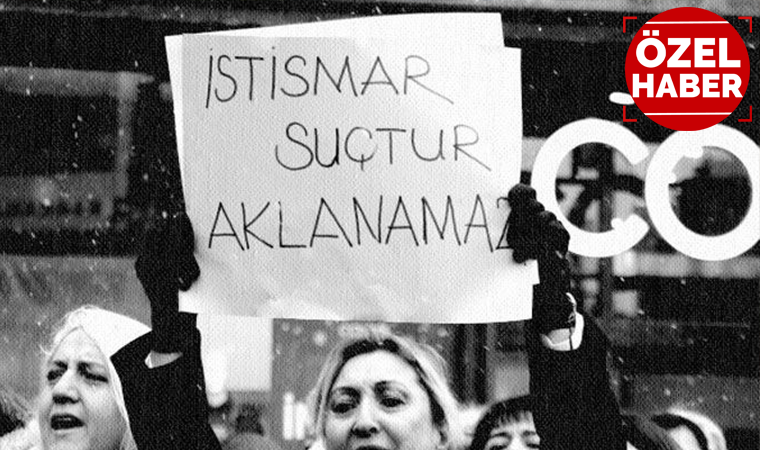 ÖZEL
HABER
İSTİSMAR
SUÇTUR
AKLANAMAZ
ÇO